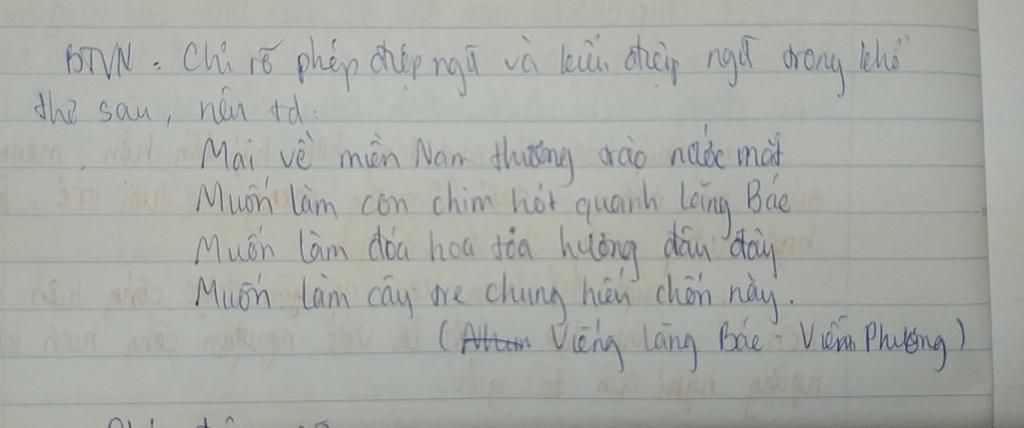 BTVN: Chỉ rõ phép điệp ngữ và kiểu điệp ngữ trong khổ
thơ sau, nêu td:
Mai về miền Nam thương trào nước mắt
Muốn làm con chim hót quanh lăng Bác
Muốn làm đóa hoa tỏa hương đâu đây
Muốn làm cây tre chung hiếu chốn này.
( Viếng lăng Bác - Viễn Phương)